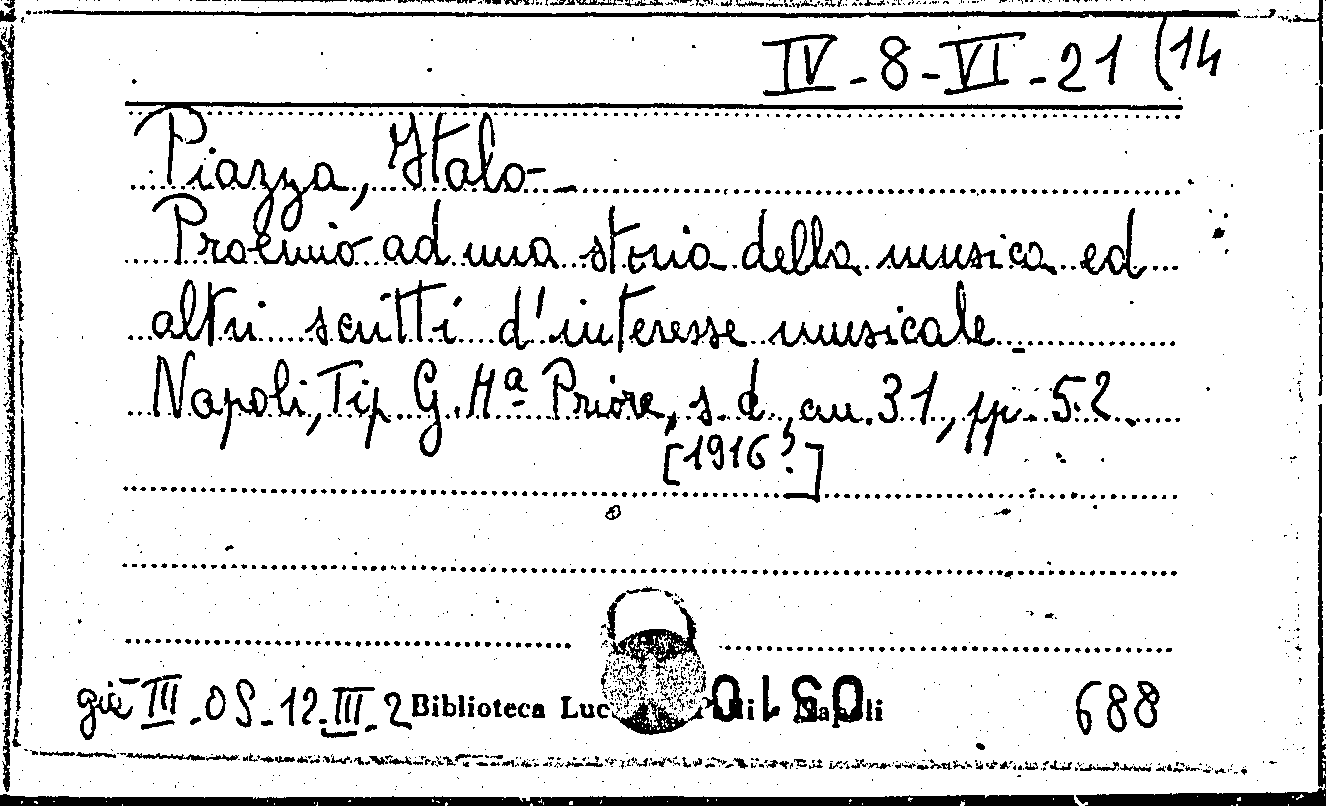 IV-8-VI-21 (14
Piazza, Italo-
Proemio ad una storia della musica ed
altri scritti d'interesse musicale_
Napoli, Tip. G. Mª Priore, s. d., cm. 31, pp. 52.
[1916?]
già III-OS-12-III-2 Biblioteca Napoli 688